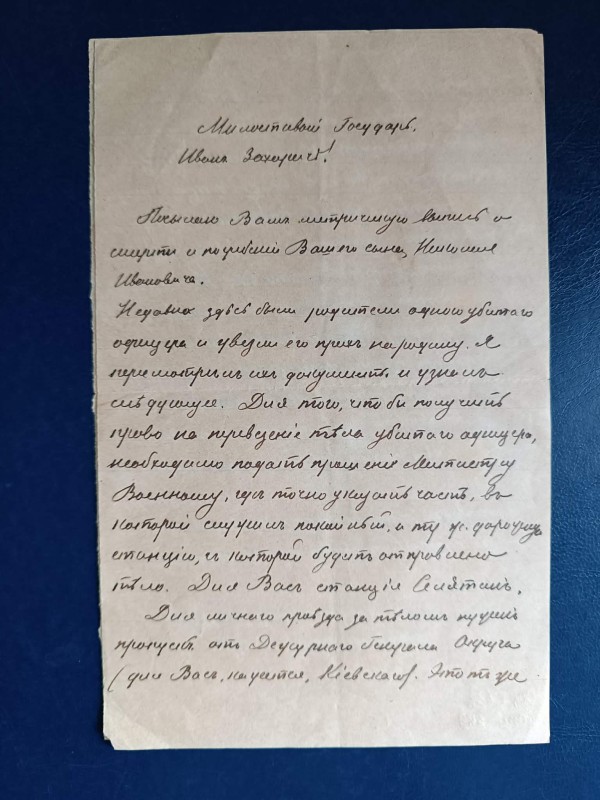 Милостивый Государь.
Иванъ Захарычъ!
Посылаю Вамъ метричную выпись о
смерти и погребеніи Вашего сына, Николая
Ивановича.
Недавно здѣсь были родители одного убитаго
офицера и увезли его прахъ на родину. Я
пересмотрѣлъ ихъ документы и узналъ
слѣдующее. Для того, чтобы получить
право на перевезеніе тѣла убитаго офицера,
необходимо подать прошеніе Министру
Военному, гдѣ точно указать часть, въ
которой служилъ покойный, и ту ж. дорожную
станцію, съ которой будетъ отправлено
тѣло. Для Васъ станція Селятинъ.
Для личнаго проѣзда за тѣломъ нуженъ
пропускъ отъ Дежурнаго Генерала Округа
(для Васъ, кажется, Кіевскаго). Этотъ же